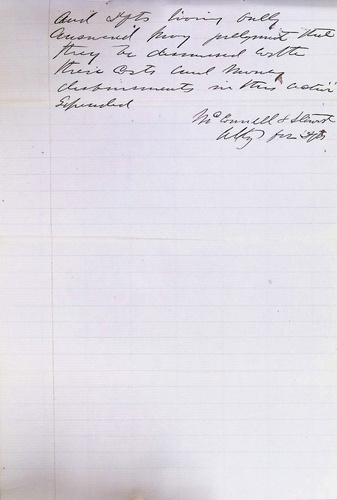 And Dfts having fully
answered pray judgment that
they be dismissed with
their Costs and money
disbursments in this action
Expended
McConnell & Stewart
Attys for Dfts